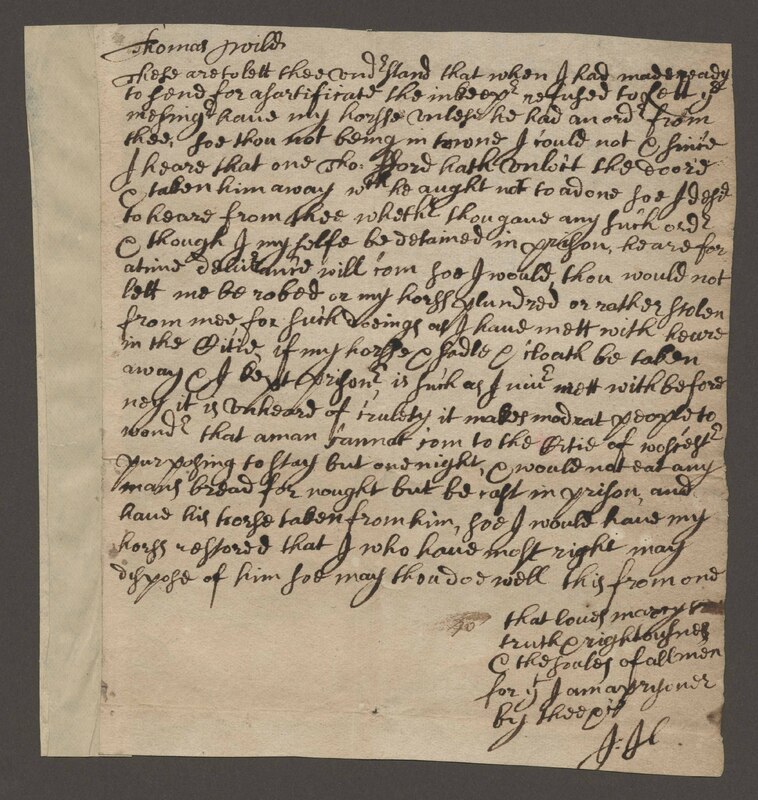 Thomas Wild
These are to lett thee undrstand that when I had made ready
to send for a sartificate the inkeepr refused to lett ye
mesingr have my horsse unlese he had an ordr from
thee, soe thou not being in towne I could not & since
I heare that one Tho: fford hath unloct the doore
& taken him away wch he aught not to a done soe I desire
to heare from thee whethr thou gave any such ordr
& though I my selfe be detained in prison, heare for
a time delivrance will com soe I would thou would not
lett me be robed or my horss plundred or rather stolen
from mee for such doeings as I have mett with heare
in the Citie if my horsse & sadle & cloath be taken
away & I kept prisonr is such as I nivr mett with before
ney it is unheard of crulety it makes modrat people to
wondr that a man cannat com to the Citie of wostestr
purposing to stay but one night, & would not eat any
mans bread for nought but be cast in prison, and
have his horse taken from him, soe I would have my
horss restored that I who have most right may
dispose of him soe may thou doe well this from one
that loves marcy
truth & rightousnes
& the soules of all men
for yt I am a prysoner
by thee
J: Jl